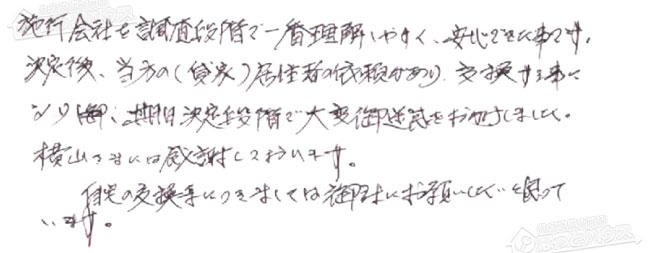 施行会社を調査段階で一番理解しやすく、安心できた事です。
決定後、当方の(貸家)居住者の依頼があり、交換する事に
なり、期日決定段階で大変御迷惑をおかけしました。
横山さまには感謝しております。
自宅の交換等につきましては御社にお願いしたいと思って
います。